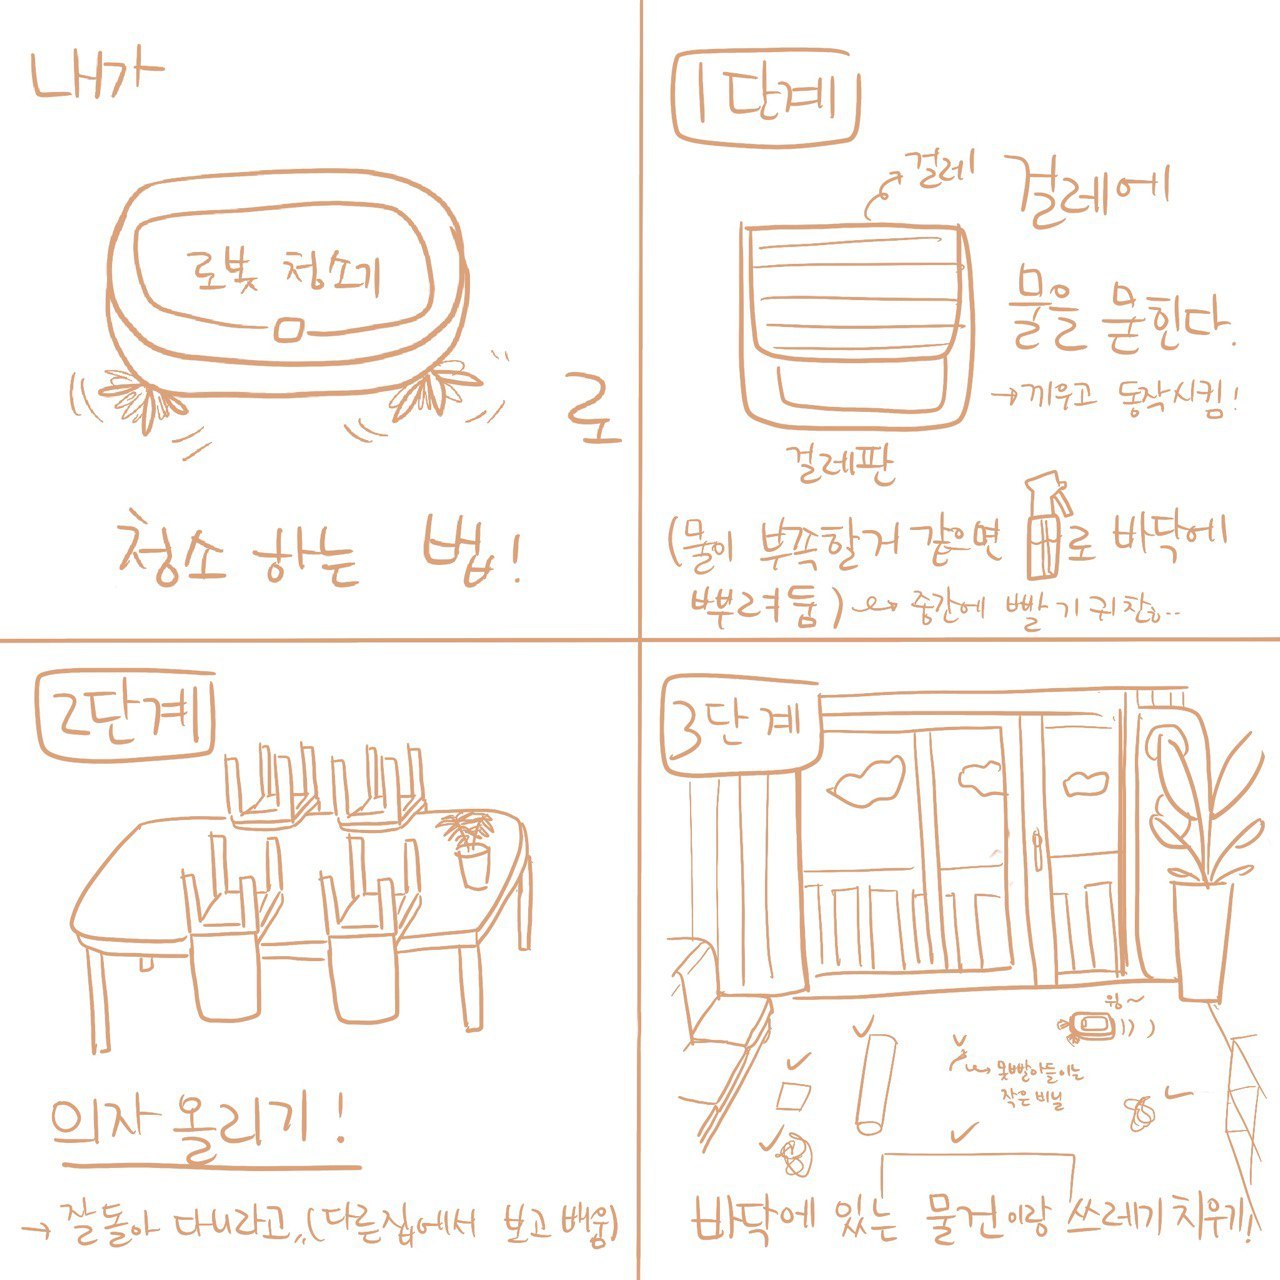 내가
로봇 청소기
로
청소 하는 법!
1단계
걸레
걸레에
물을 묻힌다.
→끼우고 동작시킴!
걸레판
(물이 부족할거 같으면 로 바닥에
뿌려둠) → 중간에 빨기 귀찮..
2단계
의자 올리기!
→ 잘 돌아 다니라고,, (다른집에서 보고 배움)
3단계
윙~
→ 못빨아들이는
작은 비닐
바닥에 있는 물건이랑 쓰레기 치우기!